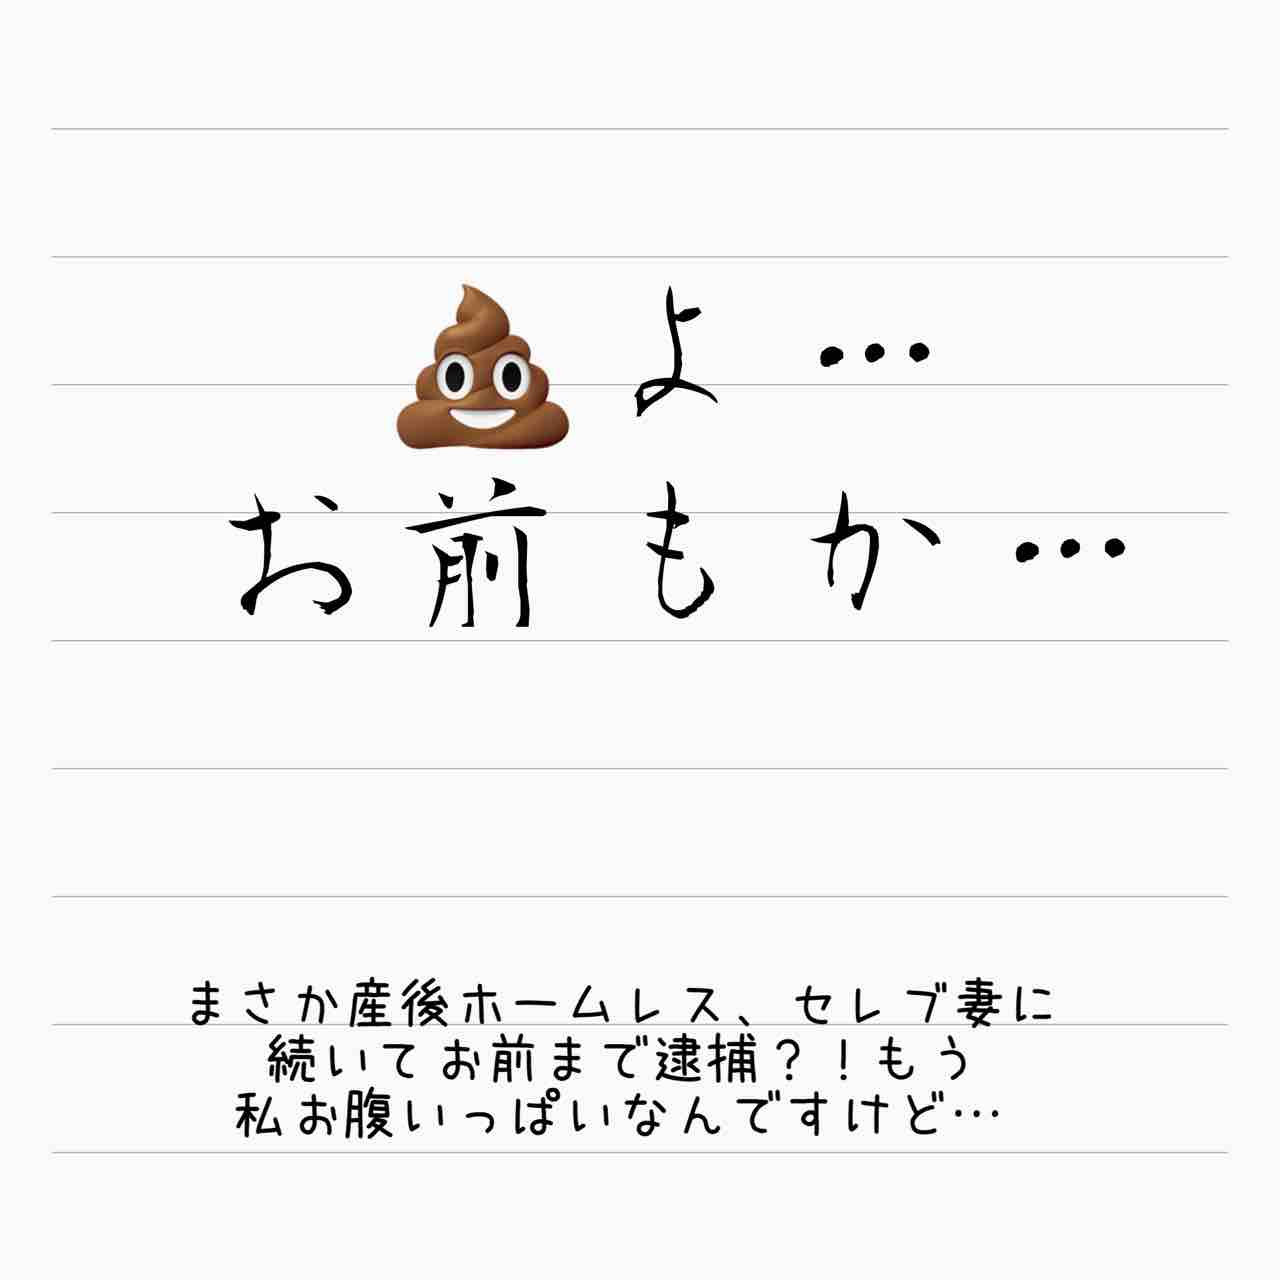 💩よ…
お前もか…
まさか産後ホームレス、セレブ妻に
続いてお前まで逮捕？！もう
私お腹いっぱいなんですけど…